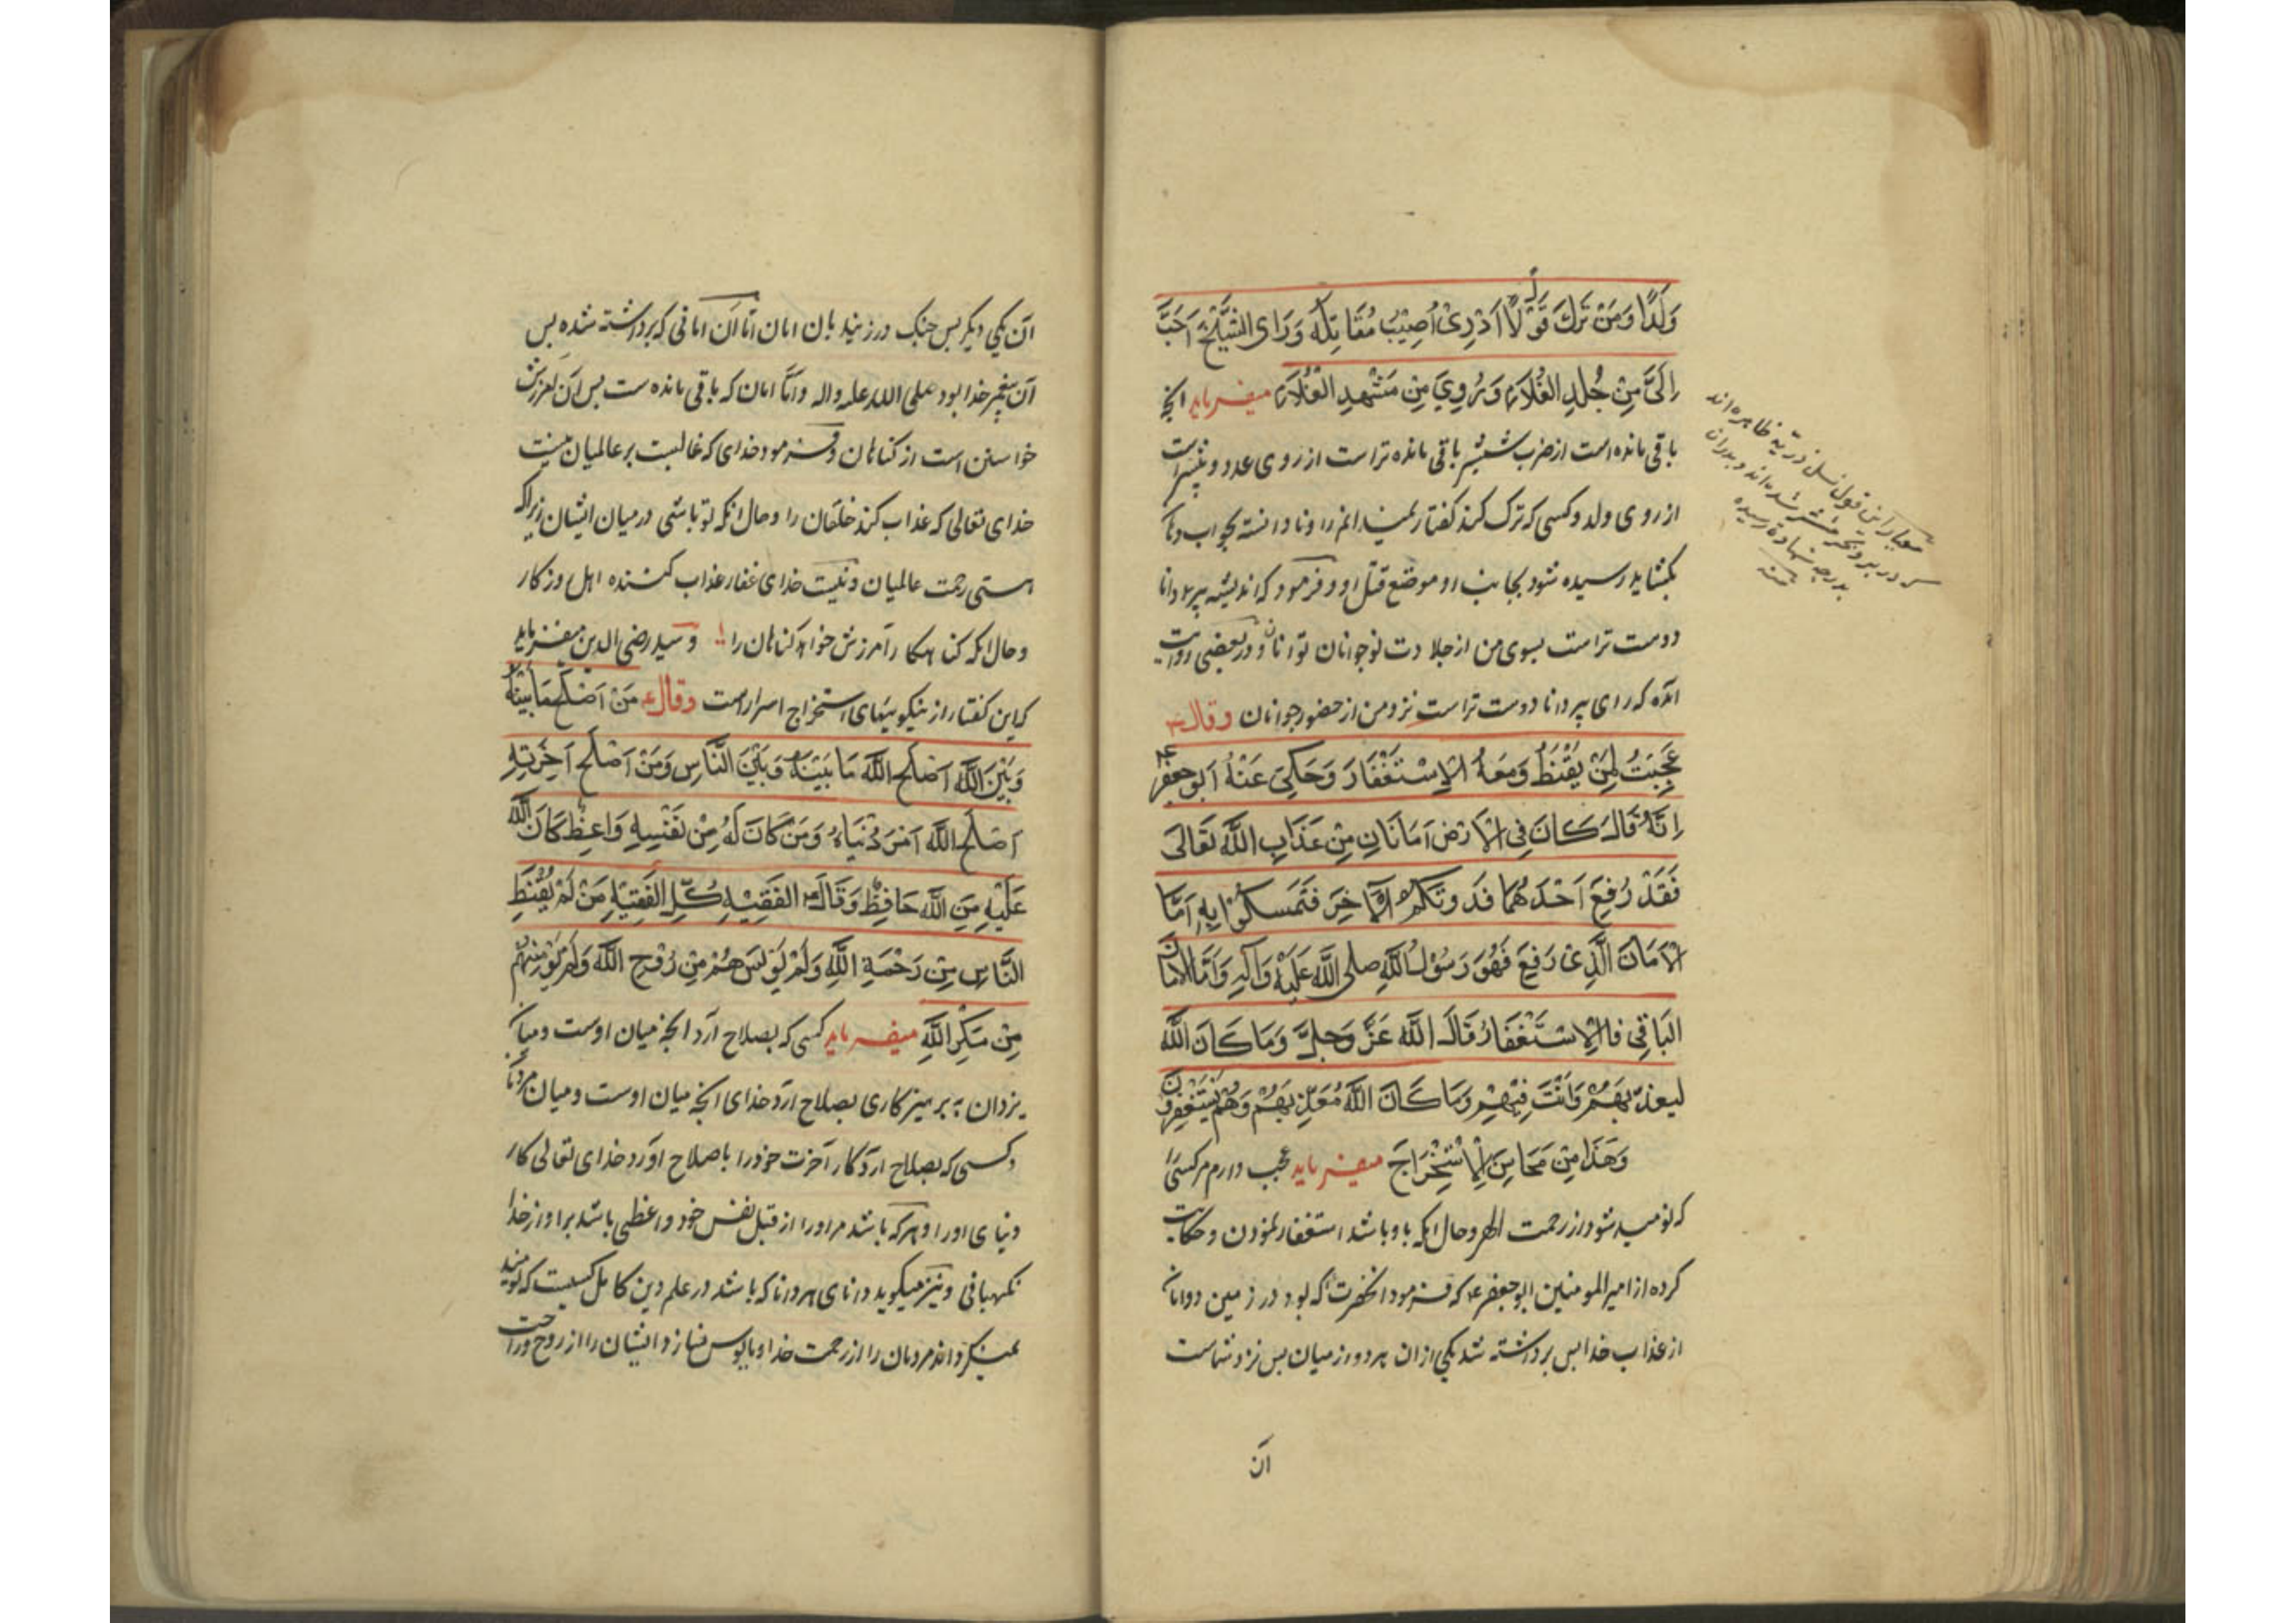 وَلَدًا وَمَنْ تَرَكَ قَوْلَ لَا اَدْرِیْ اُصِیْبُ مُقَاتِلَهُ وَرَای الشَّیْخِ اَحَبُّ
اِلَیَّ مِنْ جُلَدِ الْغُلَامِ وَ رُوِیَ مِنْ مَشْهَدِ الْغُلَامِ میفرماید آنچه
باقی مانده است از ضرب شمشیر باقی مانده تر است از روی عدد و بیشتر است
از روی ولد و کسی که ترک کند گفتار نمیدانم را و نادانسته بجواب
بگشاید رسیده شود بجانب او موضع قتل او و فرمود که اندیشه پیر دانا
دوست تر است بسوی من از جلادت نوجوانان توانا و در بعضی روایت
آمده که رای پیر دانا دوست تر است نزد من از حضور جوانان وقال ع
عَجِبَتُ لِمَنْ یَقْنَطُ وَمَعَهُ الْاِسْتَغْفَارَ وَحَکِیَ عَنْهُ اَبُوجعفر ع
اِنَّهُ قَالَ کَانَ فِی الْاَرْضِ اَمَانَانِ مِنْ عَذَابِ اللَّهِ تَعَالَی
فَقَدْ رُفِعَ اَحْدَهُمَا فَدُونَکُمُ الْآخِرَ فَتَمَسَکُوْا بِهِ اَمَّا
الْاَمَانَ الَّذِیْ رَفِعَ فَهُوَ رَسُوْلُ اللَّهِ صلی اللَّه عَلَیْهِ وَآلِهِ وَاَمَّا الامَانُ
البَاقِی فاالْاِسْتَغْفَارُ قَالَ اللَّهُ عَزَّ وَجَلَّ وَمَا کَانَ اللَّهُ
لیعذّبَهُمْ وَاَنْتَ فِیْهِمْ وَمَا کَانَ اللَّهُ مُعَذِّبَهُمْ وَهُمْ یَسْتَغْفِرُوْنَ
وَهَذَا مِنْ مَحَاسِنَ الْاِسْتِخْرَاجَ میفرماید عجب دارم مر کسی را
که نومید شود از رحمت الهی و حال آنکه با او باشد استغفار نمودن و حکایت
کرده از امیر المومنین ابو جعفر ع که فرمود آنحضرت که بود در زمین دو امان
از عذاب خدا پس برداشته شد یکی از ان هر دو از میان پس نزد شماست
آن
معیار این قول نسل ذریه طاهره اند
که در بر و بحر منتشر شده اند و پدران
بدرجه شهادة رسیده
آن یکی دیگر پس چنک در زنید بان امان امّا آن امانی که برداشته شده پس
آن پیغمبر خدا بود صلی الله علیه و اله و امّا امان که باقی مانده ست پس آن
خواستن است از کناهان و فرمود خدای که غالبست بر عالمیان نیست
خدای تعالی که عذاب کند خلقان را و حال آنکه تو باشی در میان ایشان زیرا که
هستی رحمت عالمیان و نیست خدای غفار عذاب کننده اهل روزکار
و حال آنکه کناهکار آمرزش خواهد کناهان را و سید رضی الدین میفرماید
که این گفتار از نیکوییهای استخراج اسرار است وقال ع مَنْ اَصْلَحَ مَا بَیْنَهُ
وَبَیْنَ اللَّهِ اَصْلَحَ اللَّهُ مَا بَیْنَهُ وَبَیْنَ النَّاسِ وَمَنْ اَصْلَحَ آخِرَتِهِ
اَصْلَحَ اللَّهُ اَمْرَ دُنْیَاهُ وَمَنْ کَانَ لَهُ مِنْ نَفْسِهِ وَاعِظٌ کَانَ اللَّه
عَلَیْهِ مِنَ اللَّهِ حَافِظٌ وَقَالَ ع الفَقِیْهِ کُلِّ الفَقِیْهِ مَنْ لَمْ یُقْنِطِ
النَّاسِ مِنْ رَحْمَةِ اللَّهِ وَلَمْ یُوْیِسْهُمْ مِنْ رَوْحِ اللَّهِ وَلَمْ یُؤْمِنْهُمْ
مِنْ مَکْرِ اللَّهِ میفرماید کسی که بصلاح آرد آنچه میان اوست و میان
یزدان به پرهیزکاری بصلاح آرد خدای آنچه میان اوست و میان مردمان
و کسی که بصلاح آرد کار آخرت خود را باصلاح آورد خدای تعالی کار
دنیای او را و هر که باشد مر او را از قبل نفس خود واعظی باشد بر او از خدا
نکهبانی و نیز میکوید دانای هر دانا که باشد در علم دین کامل کسیست که نومید
نمیکرداند مردمان را از رحمت خدا و مایوس نسازد ایشان را از روح و راحت